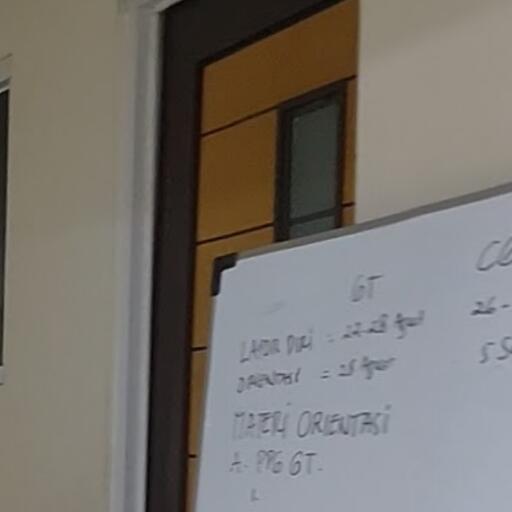 GT
LAPOR DIRI = 27-28 Agust
ORIENTASI = 28 Agust
MATERI ORIENTASI
A. PPG GT.
1.
26-
5 S